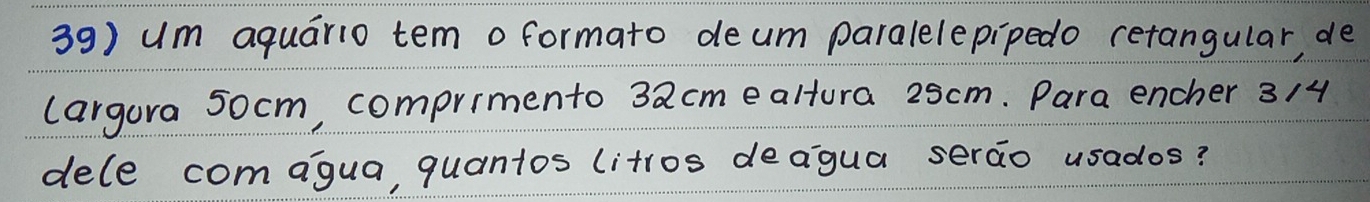 39) Um aquário tem o formato de um paralelepípedo retangular, de
largura 50cm, comprimento 32cm e altura 25cm. Para encher 3/4
dele com água, quantos litros de água serão usados?